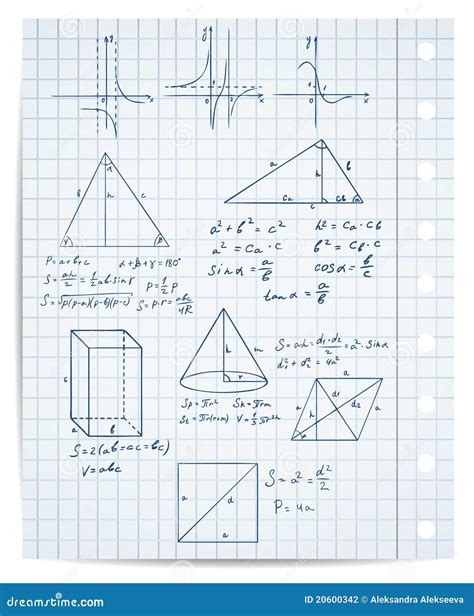 y
y
y
1
x
1
2
x
0
1
x
α
b
h
c
γ
β
a
h
b
ca
cb
α
a² + b² = c²
h² = ca · cb
a² = ca · c
b² = c · cb
sin α = a/b
cos α = b/c
tan α = a/b
P = a+b+c
α + β + γ = 180°
S = ah/2 = 1/2 ab·sin γ
p = 1/2 P
S = √p(p-a)(p-b)(p-c)
S = p·r = abc/4R
c
a
b
S = 2(ab + ac + bc)
V = abc
h
m
r
Sp = πr²
Sh = πrm
St = πr(r+m)
V = 1/3 πr²h
S = ah = d1·d2/2 = a²·sin α
d1² + d2² = 4a²
a
d1
a
h
d2
a
a
d
a
S = a² = d²/2
P = 4a
dreamstime.com
ID 20600342 © Aleksandra Alekseeva